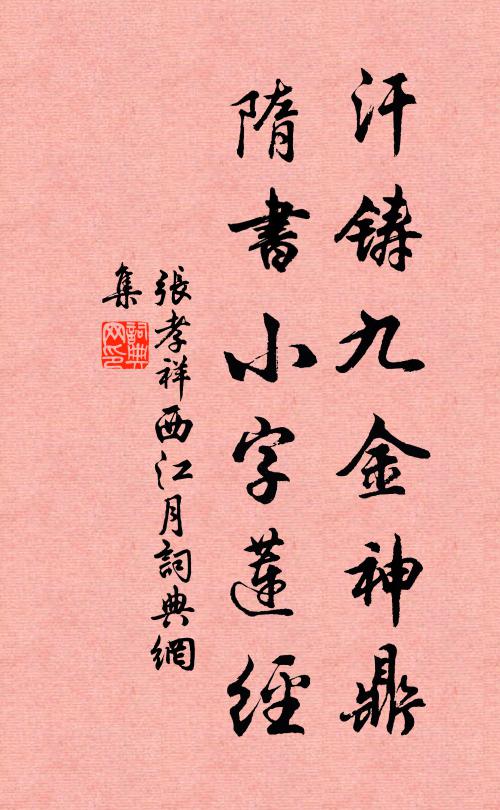 汗铸九金神鼎
隋書小字蓮經
張孝祥西江月詞典網
集
詞典网印